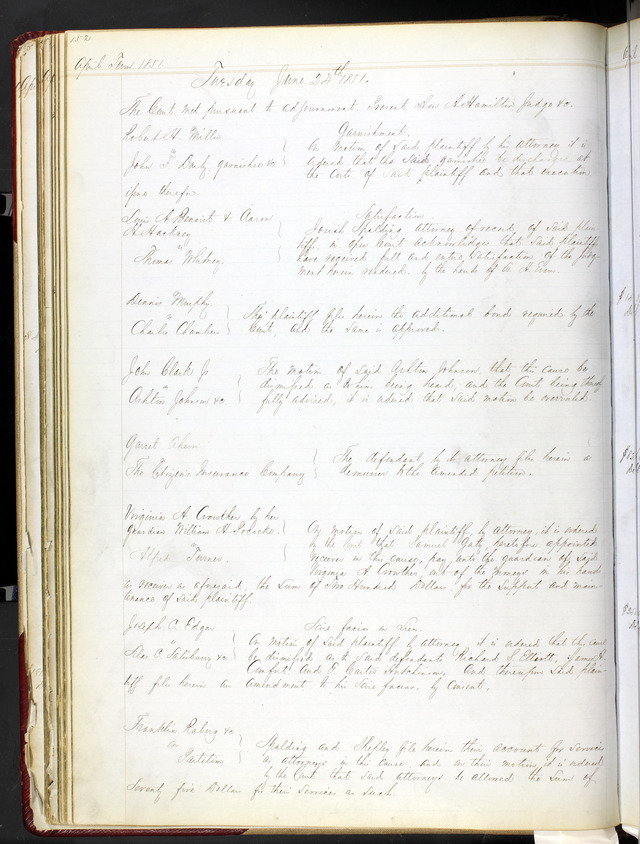 152
April Term 1851
Tuesday June 24th 1851.
The Court met pursuant to adjournment. Present Hon A. Hamilton Judge &c.
Robert H. Miller
vs
John F. Darby, garnishee &c.
Garnishment.
On motion of said plaintiff by his attorney it is
ordered that the said garnishee be discharged at
the costs of said plaintiff and that execution
issue therefor.
Louis A. Benoist & Aaron
H. Hackney
vs
Thomas Whitney.
Satisfaction
Josiah Spalding attorney of record of said plain-
tiffs, in open court acknowledges that said plaintiffs
have received full and entire satisfaction of the judg-
ment herein rendered. by the hands of
Dennis Murphy
vs
Charles Chambers
The plaintiff files herein the additional bond required by the
Court, and the same is approved.
John Clark Jr
vs
Ashton Johnson &c.
The motion of said Ashton Johnson, that this cause be
dismissed as to him being heard, and the Court being there
fully advised, it is ordered that said motion be overruled.
Garret
vs
The Citizens Insurance Company
The defendant by its attorney files herein a
demurrer to the amended petition.
Virginia A. Crowther, by her
guardian William H.
vs
Alfred Turner.
On motion of said plaintiff, by attorney, it is ordered
by the Court that Samuel Gaty heretofore appointed
receiver in this cause, pay unto the guardian of said
Virginia A. Crowther, out of the moneys in his hands
as receiver as aforesaid, the sum of Two Hundred Dollars, for the support and main-
tenance of said plaintiff.
Joseph C. Edgar
vs
Silas C. Salisbury &c.
Scire facias on Lien
On motion of said plaintiff by attorney it is ordered that this cause
be dismissed as to said defendants Richard S. Elliott, James
and E. Carter Hutchinson, And thereupon said plain-
tiff files herein an amendment to his Scire facias, by consent.
Franklin Raborg &c
vs
Partition
Spalding and Shepley file herein their account for services
as attorneys in this cause, and on their motion, it is ordered
by the Court that said attorneys be allowed the sum of
Seventy five Dollars for their services as such.